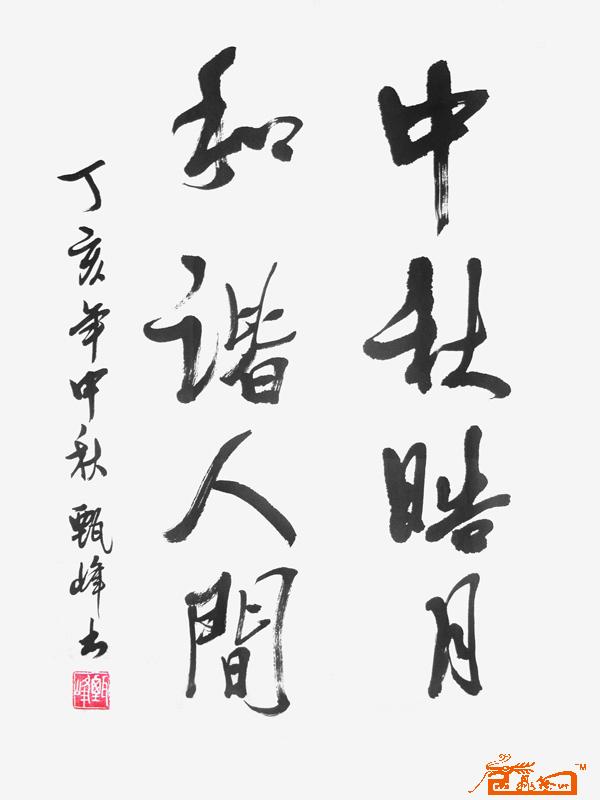 中秋晧月
和谐人間
丁亥年中秋 甄峰书
甄峰